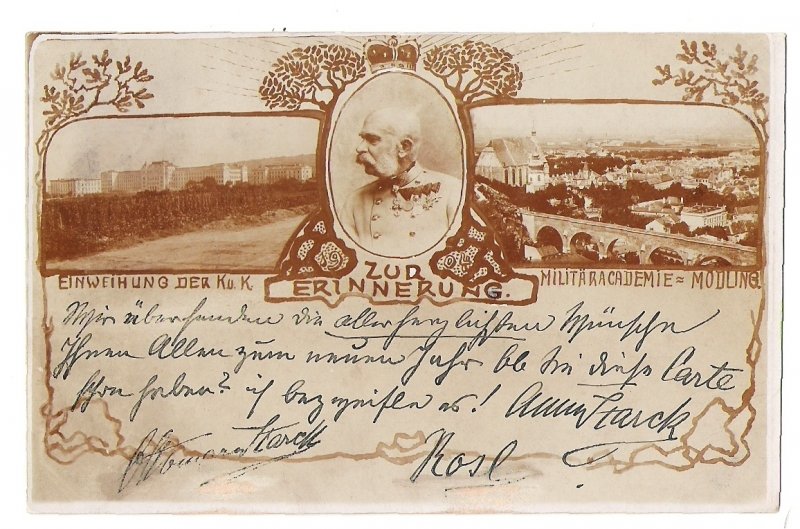 19 04
ZUR
ERINNERUNG.
EINWEIHUNG DER K.u.K.
MILITÄRACADEMIE = MÖDLING
Wir übersenden die allerherzlichsten Wünsche
Ihnen Allen zum neuen Jahr. Ob Sie diese Carte
schon haben? ich bezweifle es! Anna Starck
Starck
Rosl